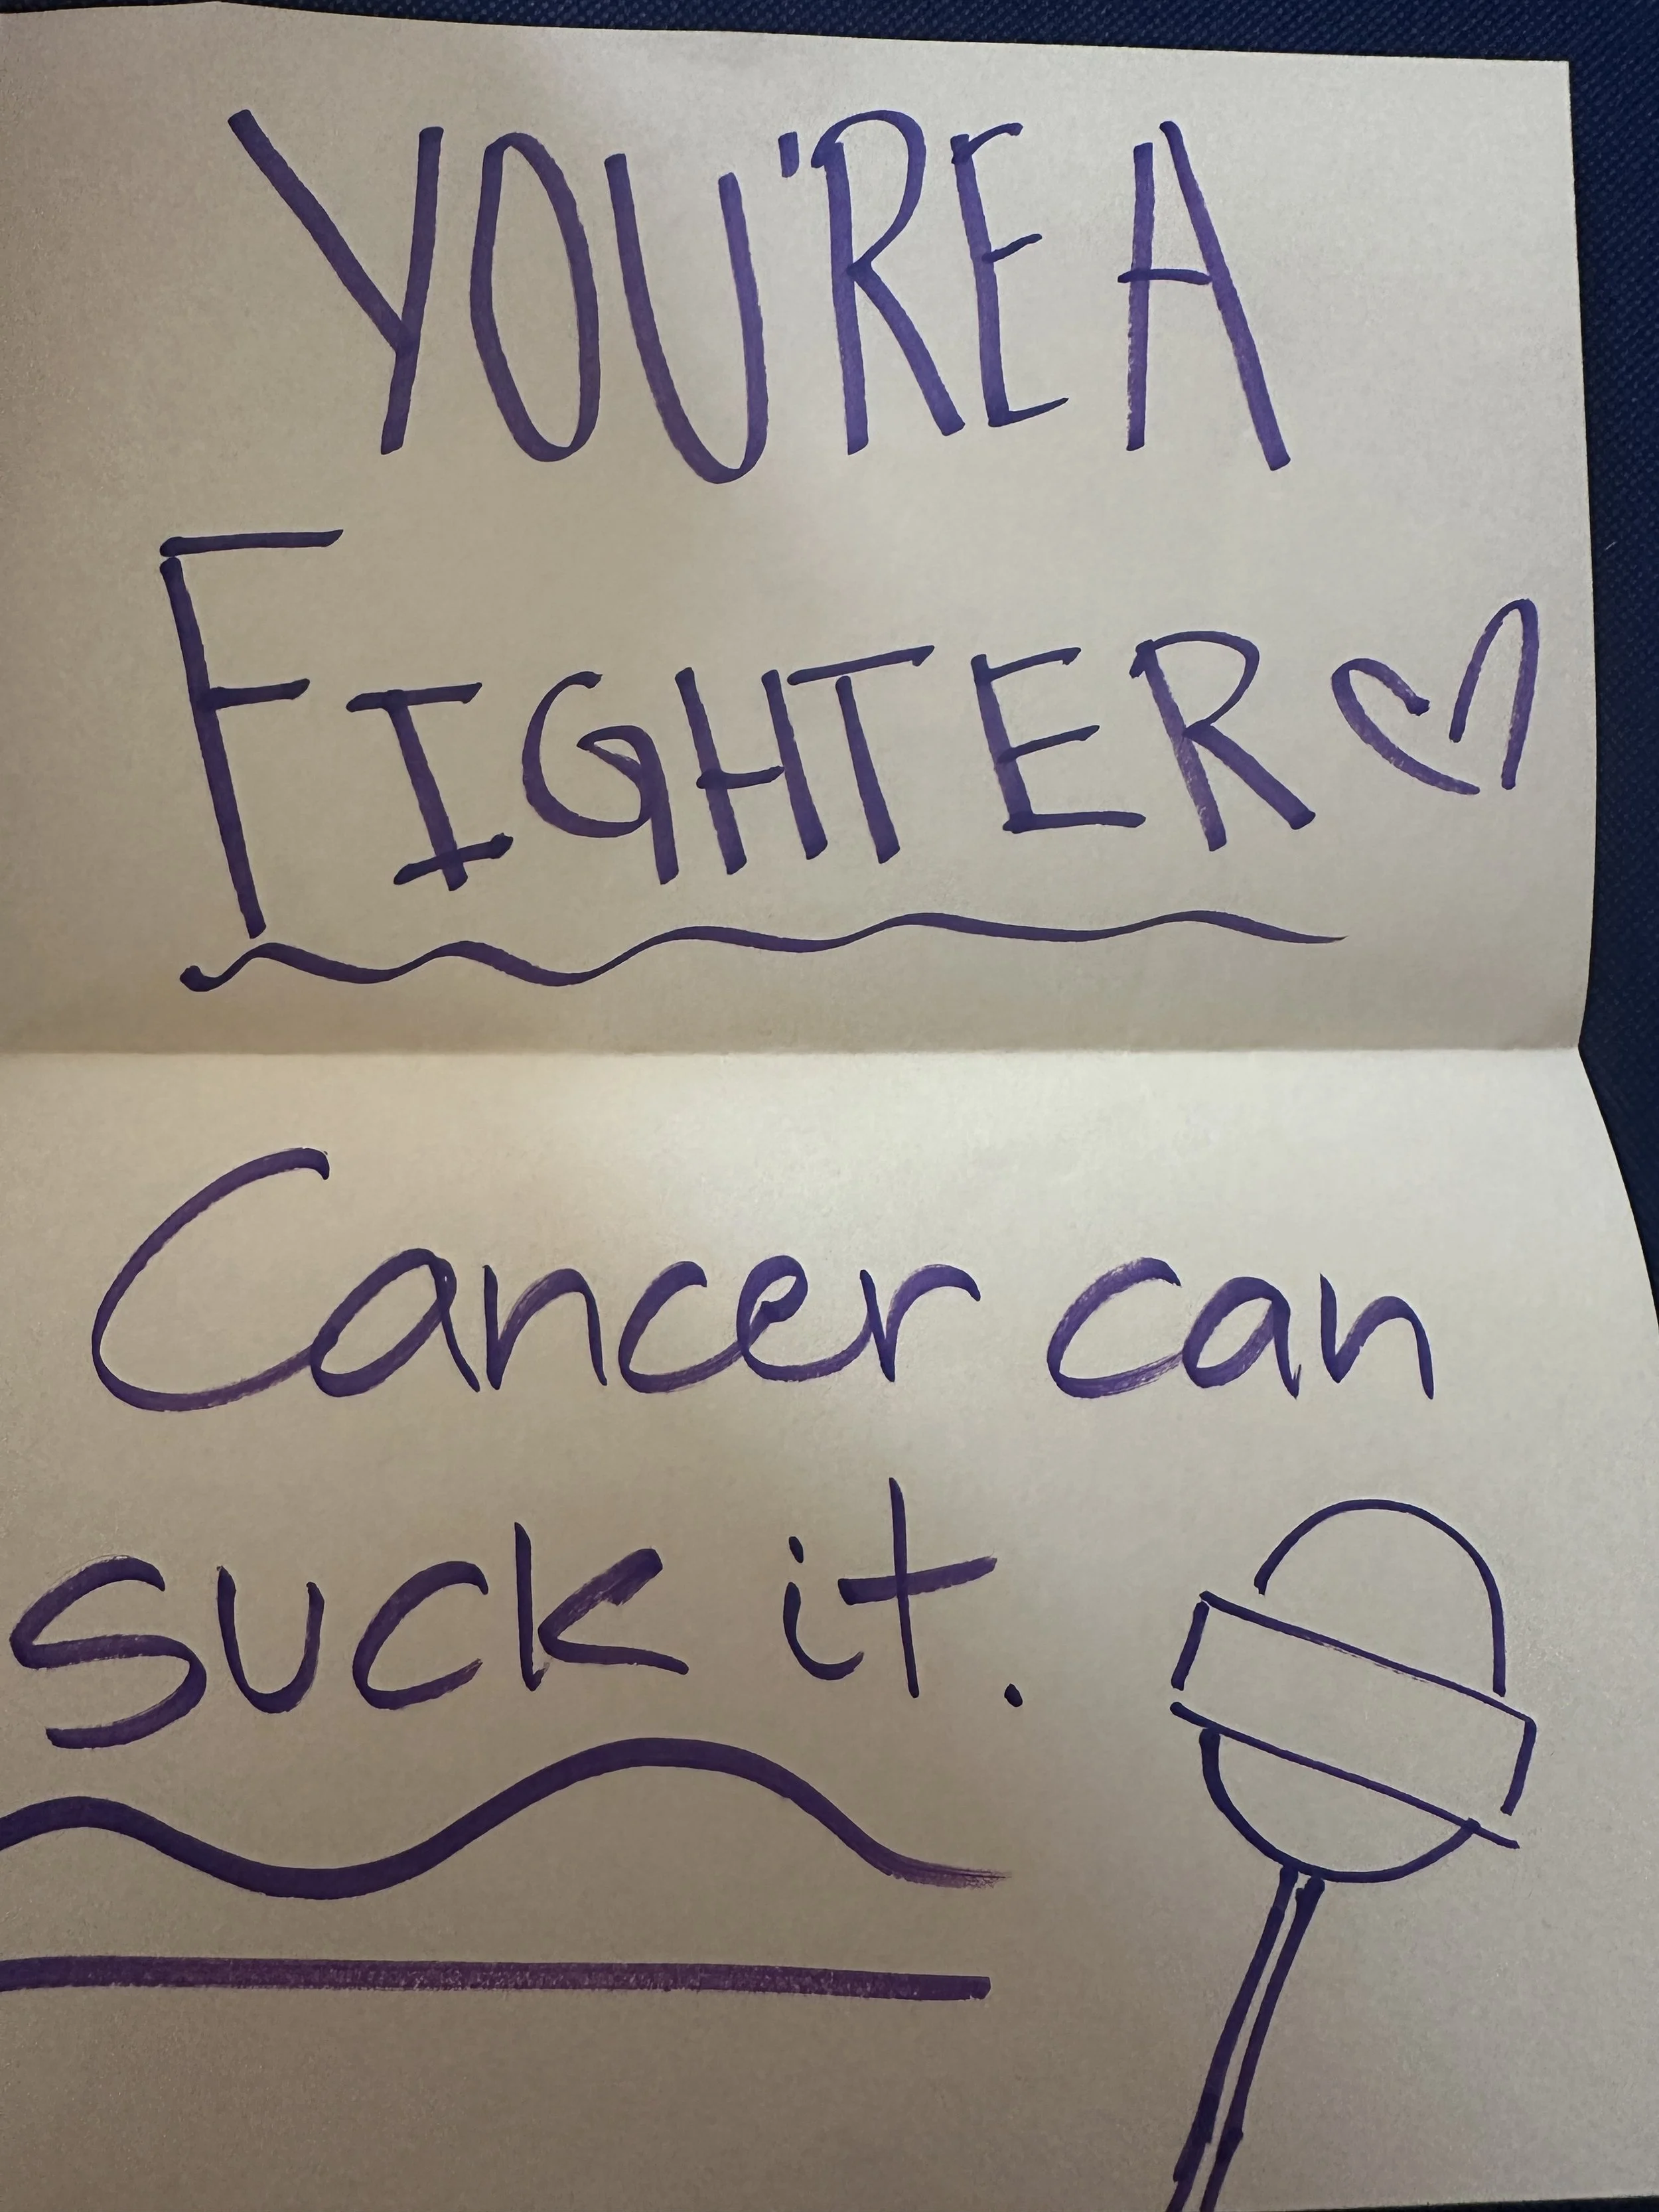 YOU'RE A
FIGHTER
Cancer can
suck it.